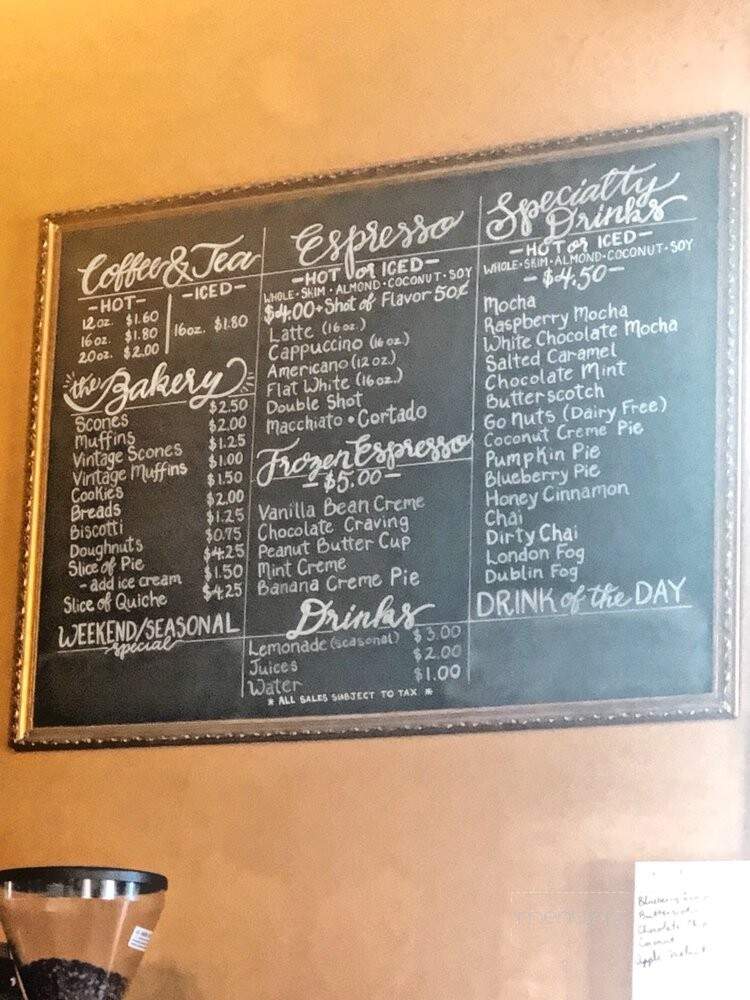 Coffee & Tea
-HOT-
12 oz. $1.60
16 oz. $1.80
20 oz. $2.00
-ICED-
16oz. $1.80
the Bakery
Scones $2.50
Muffins $2.00
Vintage Scones $1.25
Vintage Muffins $1.00
Cookies $1.50
Breads $2.00
Biscotti $1.25
Doughnuts $0.75
Slice of Pie $4.25
- add ice cream $1.50
Slice of Quiche $4.25
WEEKEND/SEASONAL
special
Espresso
-HOT or ICED-
WHOLE·SKIM·ALMOND·COCONUT·SOY
$4.00 + Shot of Flavor 50¢
Latte (16 oz.)
Cappuccino (16 oz.)
Americano (12 oz.)
Flat White (16 oz.)
Double Shot
Macchiato • Cortado
Frozen Espresso
-$5.00-
Vanilla Bean Creme
Chocolate Craving
Peanut Butter Cup
Mint Creme
Banana Creme Pie
Drinks
Lemonade (seasonal) $3.00
Juices $2.00
Water $1.00
* ALL SALES SUBJECT TO TAX *
Specialty
Drinks
-HOT or ICED-
WHOLE·SKIM·ALMOND·COCONUT·SOY
-$4.50-
Mocha
Raspberry Mocha
White Chocolate Mocha
Salted Caramel
Chocolate Mint
Butterscotch
Go Nuts (Dairy Free)
Coconut Creme Pie
Pumpkin Pie
Blueberry Pie
Honey Cinnamon
Chai
Dirty Chai
London Fog
Dublin Fog
DRINK of the DAY
Blueberry
Chocolate
Coconut
Apple